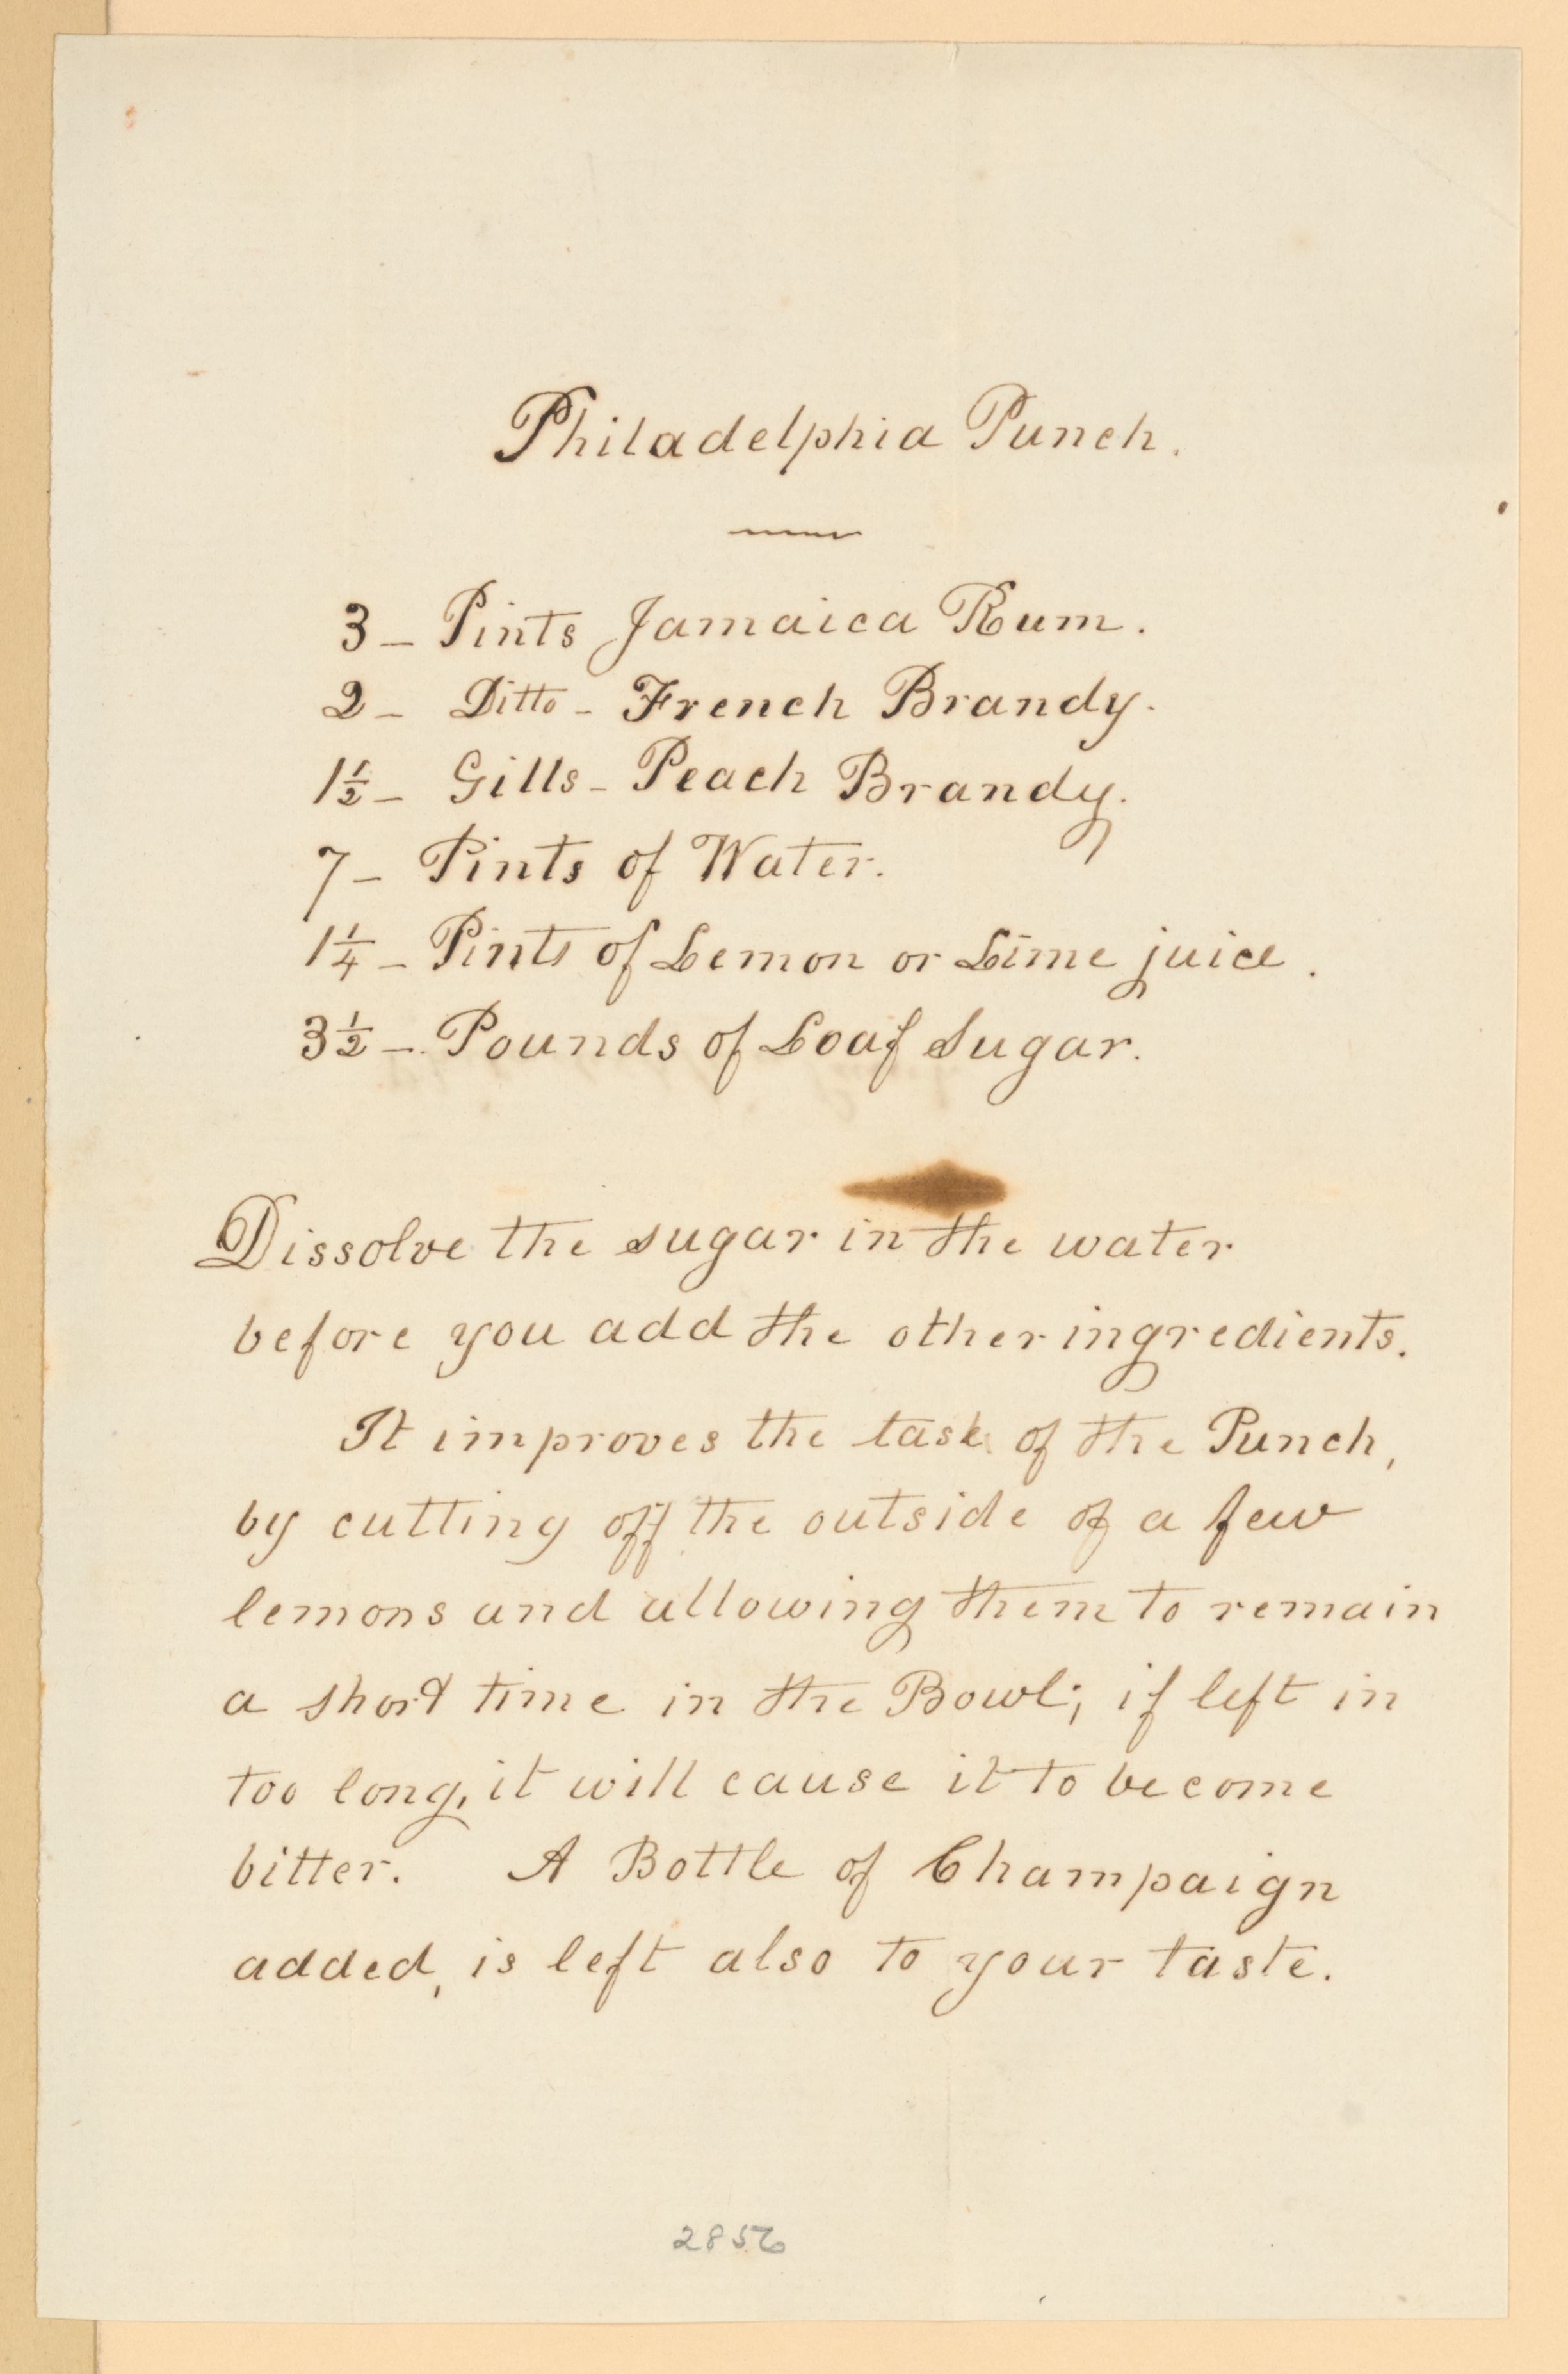 Philadelphia Punch.
3 – Pints Jamaica Rum.
2 – Ditto – French Brandy.
1½ – Gills – Peach Brandy.
7 – Pints of Water.
1¼ – Pints of Lemon or Lime juice.
3½ – Pounds of Loaf Sugar.
Dissolve the sugar in the water
before you add the other ingredients.
It improves the taste of the Punch,
by cutting off the outside of a few
lemons and allowing them to remain
a short time in the Bowl; if left in
too long, it will cause it to become
bitter. A Bottle of Champaign
added, is left also to your taste.
2856